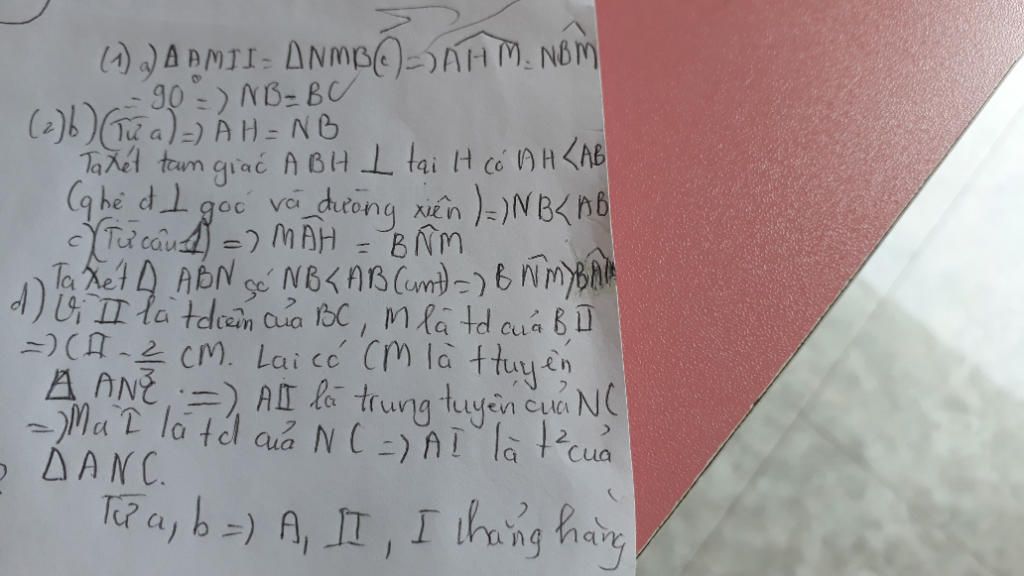 (1) a) Δ AMII = ΔNMB(c) => AĤM = NB̂M
= 90° => NB = BC
(2) b) (Từ a) => AH = NB
Ta xét tam giác ABH ⊥ tại H có AH < AB
(qhê đ ⊥ góc và đường xiên) => NB < AB
c) (Từ câu 1) => MÂH = BN̂M
Ta xét Δ ABN có NB < AB (cmt) => BN̂M > BÂM
d) Vì II là tđiểm của BC, M là tđ của BII
=> CII = 2/3 CM. Lại có CM là ttuyến
Δ ANC => AII là trung tuyến của NC
=> Mà I là tđ của NC => AI là t² của
Δ ANC.
Từ a, b => A, II, I thẳng hàng